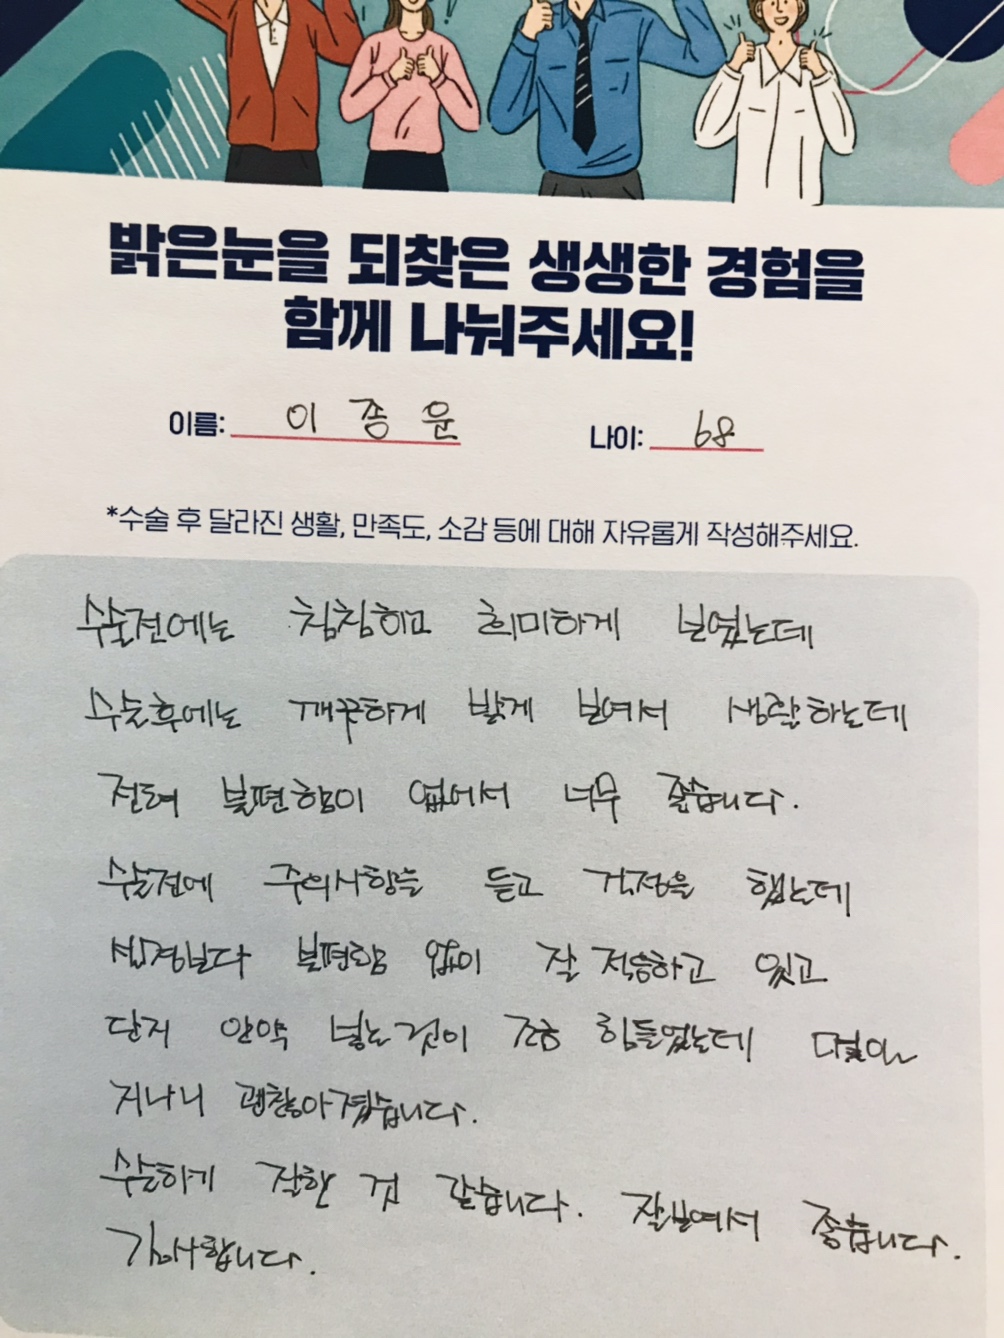 밝은눈을 되찾은 생생한 경험을
함께 나눠주세요!
이름: 이종운 나이: 68
*수술 후 달라진 생활, 만족도, 소감 등에 대해 자유롭게 작성해주세요.
수술전에는 침침하고 희미하게 보였는데
수술후에는 깨끗하게 밝게 보여서 생활하는데
전혀 불편함이 없어서 너무 좋습니다.
수술전에 주의사항을 듣고 걱정을 했는데
불편함 없이 잘 적응하고 있고
단지 안약 넣는것이 조금 힘들었는데 며칠이
지나니 괜찮아졌습니다.
수술하기 잘한 것 같습니다. 잘보여서 좋습니다.
감사합니다.